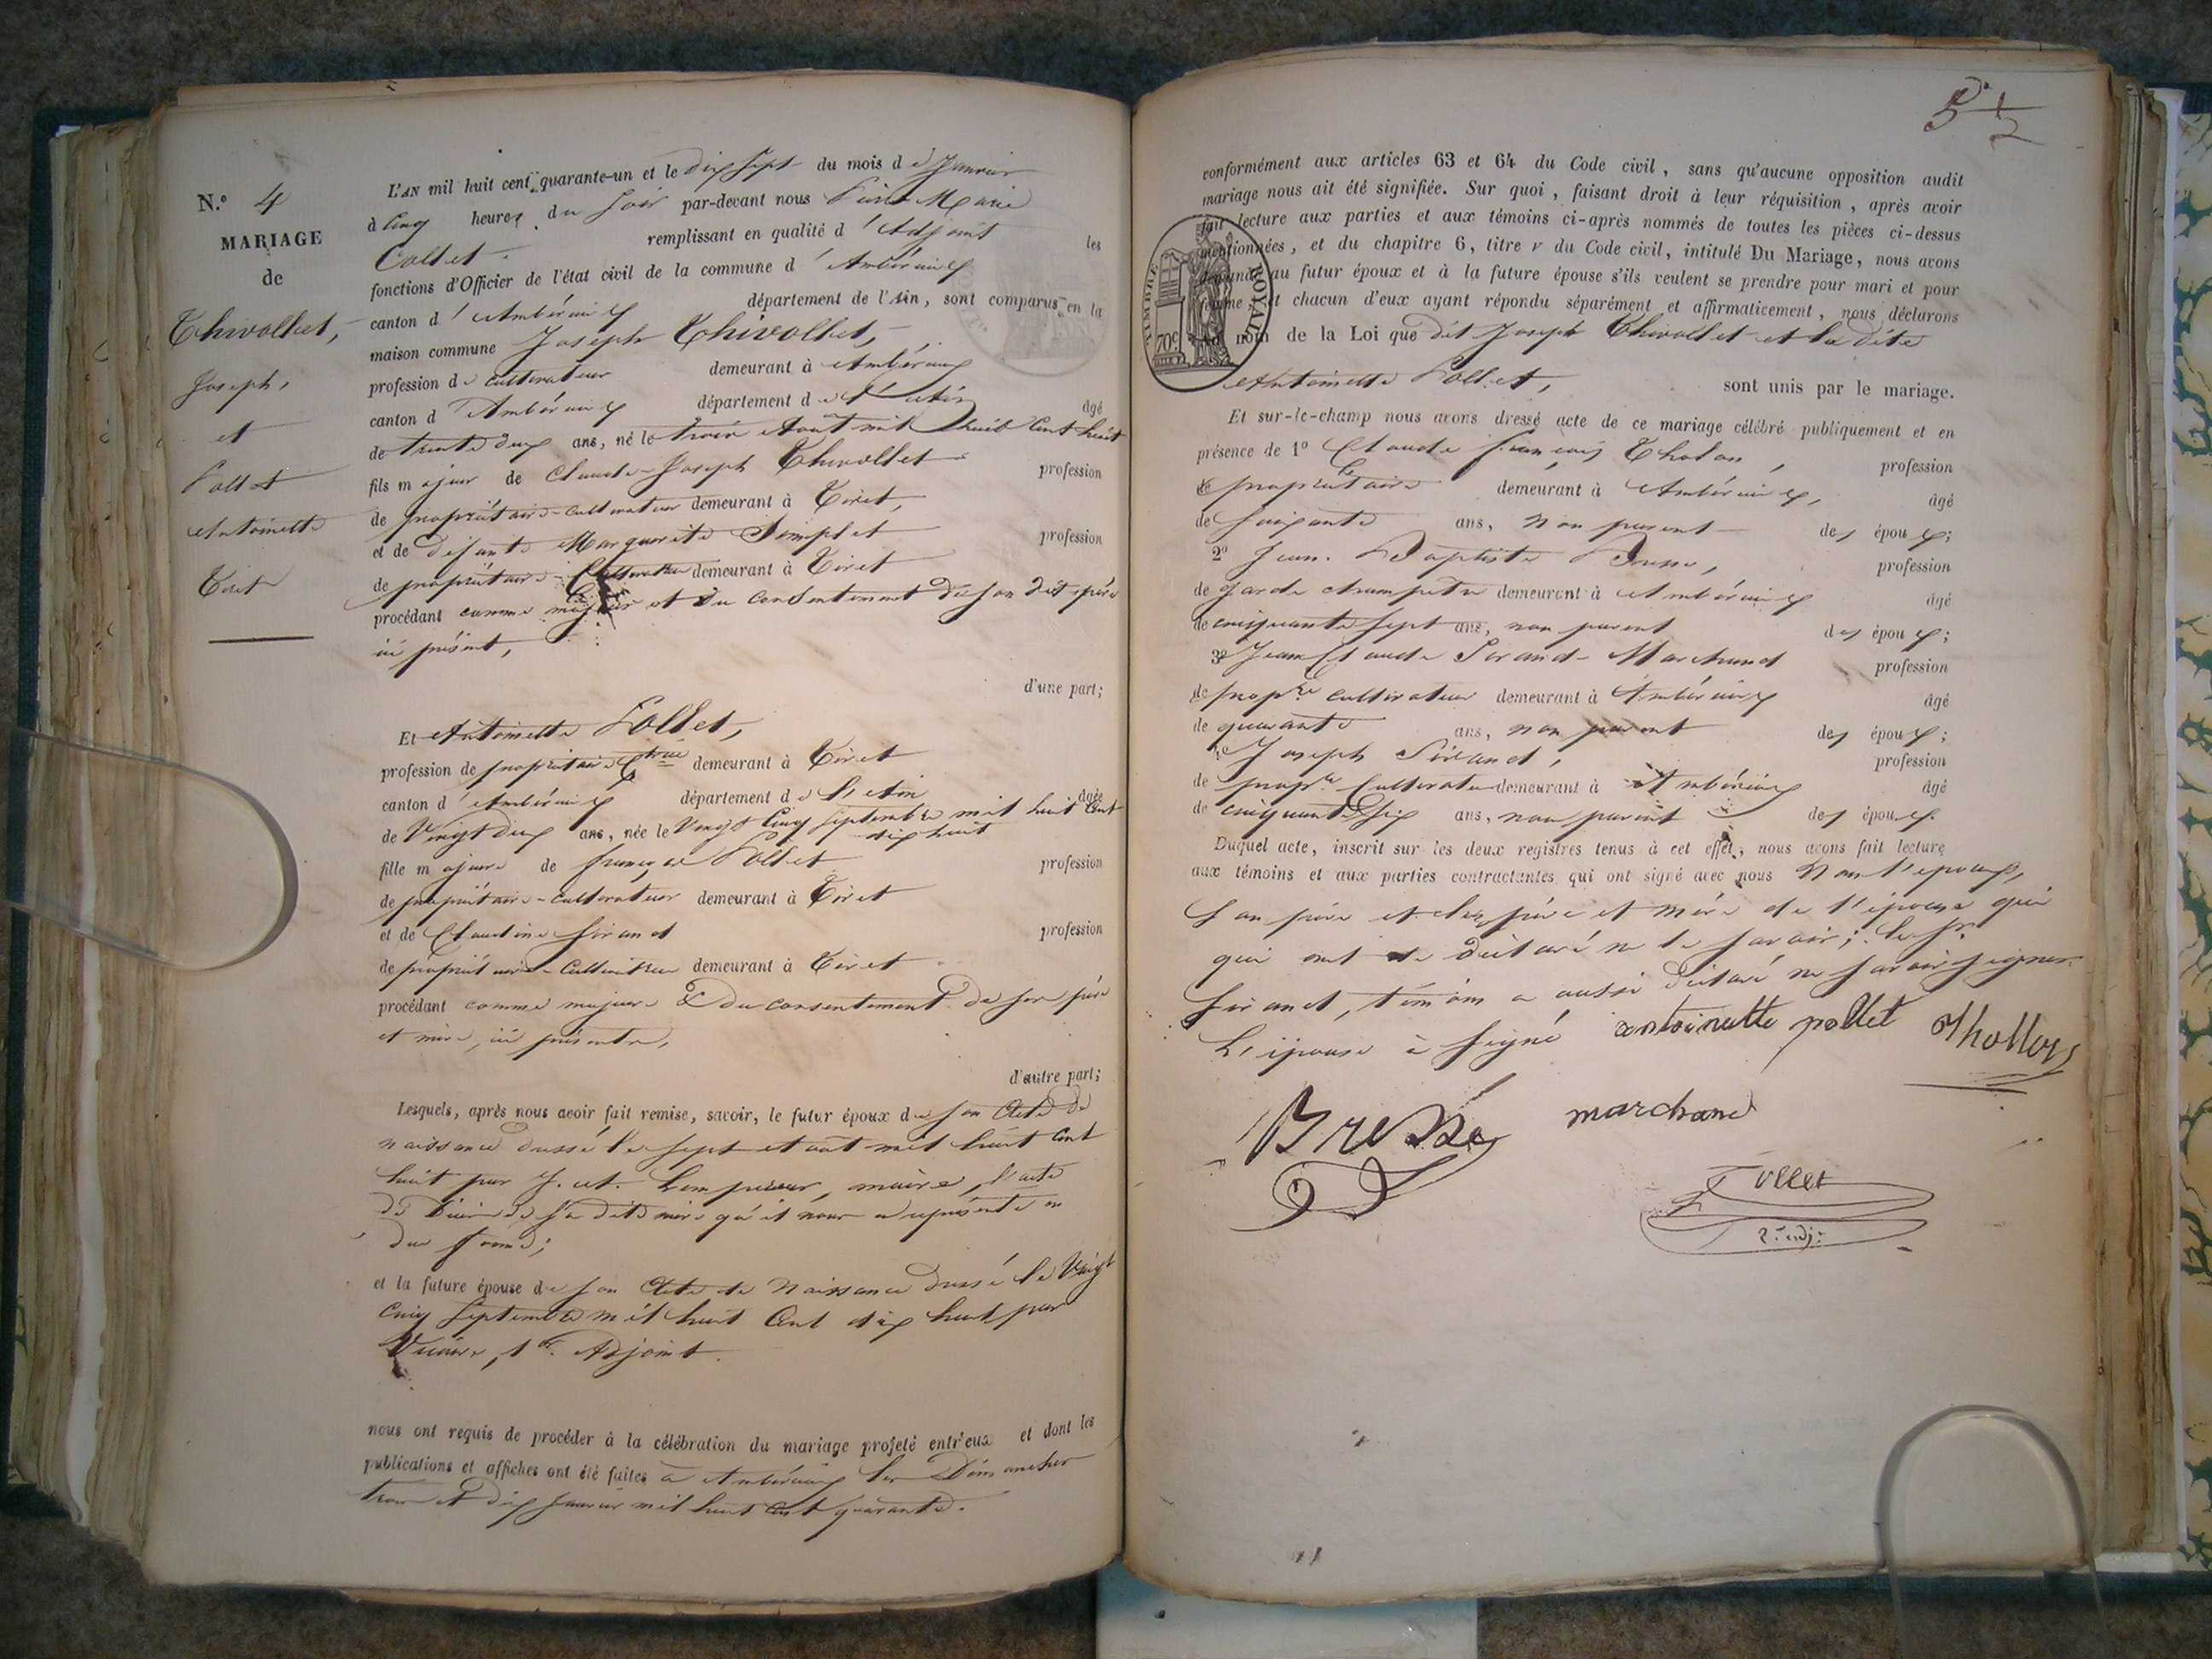 N.º 4
MARIAGE
de
Thivollet,
Joseph,
et
Pollet
Antoinette
Tiret
L'AN mil huit cent quarante-un et le dix sept du mois de Janvier
à Cinq heures du Soir par-devant nous Pierre Marie
Collet remplissant en qualité d'Adjoint les
fonctions d'Officier de l'état civil de la commune d'Ambérieux
canton d'Ambérieux département de l'Ain, sont comparus en la
maison commune Joseph Thivollet,
profession de cultivateur demeurant à Ambérieux
canton d'Ambérieux département de l'Ain âgé
de trente deux ans, né le trois Août mil huit Cent huit
fils majeur de Claude-Joseph Thivollet profession
de propriétaire-cultivateur demeurant à Tiret,
et de défunte Marguerite Simplet profession
de propriétaire-Cultivatrice demeurant à Tiret
procédant comme majeur et du consentement de son dit père
ici présent,
d'une part;
Et Antoinette Pollet,
profession de propriétaire Ctrice demeurant à Tiret
canton d'Ambérieux département de l'Ain âgée
de Vingt deux ans, née le Vingt Cinq Septembre mil huit Cent
dix huit
fille majeure de françois Pollet profession
de propriétaire-cultivateur demeurant à Tiret
et de Claudine Sirand profession
de propriétaire-Cultivatrice demeurant à Tiret
procédant comme majeure & du consentement de ses père
et mère, ici présents,
d'autre part;
Lesquels, après nous avoir fait remise, savoir, le futur époux de son Acte de
naissance dressé le sept Août mil huit Cent
huit par J. Lempereur, maire, l'acte
de Décès de sa dite mère qu'il nous a représenté en
due forme;
et la future épouse de son Acte de Naissance dressé le Vingt
Cinq Septembre mil huit Cent dix huit par
1er Adjoint.
nous ont requis de procéder à la célébration du mariage projeté entr'eux et dont les
publications et affiches ont été faites à Ambérieux les Dimanches
trois et dix Janvier mil huit cent quarante.
5
2
conformément aux articles 63 et 64 du Code civil, sans qu'aucune opposition audit
mariage nous ait été signifiée. Sur quoi, faisant droit à leur réquisition, après avoir
fait lecture aux parties et aux témoins ci-après nommés de toutes les pièces ci-dessus
mentionnées, et du chapitre 6, titre v du Code civil, intitulé Du Mariage, nous avons
demandé au futur époux et à la future épouse s'ils veulent se prendre pour mari et pour
femme; et chacun d'eux ayant répondu séparément et affirmativement, nous déclarons
au nom de la Loi que dit Joseph Thivollet et la dite
TIMBRE ROYAL
70c
Antoinette Pollet, sont unis par le mariage.
Et sur-le-champ nous avons dressé acte de ce mariage célébré publiquement et en
présence de 1º Claude françois Tholon, profession
de propriétaire demeurant à Ambérieux, âgé
de soixante ans, non parent des époux;
2º Jean-Baptiste Bresse, profession
de garde champêtre demeurant à Ambérieux âgé
de cinquante sept ans, non parent des époux;
3º Jean Claude Sirand-Marchand profession
de propre cultivateur demeurant à Ambérieux âgé
de quarante ans, non parent des époux;
4º Joseph Sirand, profession
de propre Cultivateur demeurant à Ambérieux âgé
de cinquante six ans, non parent des époux.
Duquel acte, inscrit sur les deux registres tenus à cet effet, nous avons fait lecture
aux témoins et aux parties contractantes qui ont signé avec nous Non l'époux,
son père et les père et mère de l'épouse qui
qui ont déclaré ne le savoir; le Sr
Sirand, témoin a aussi déclaré ne savoir signer
L'épouse a signé antoinette pollet Thollon
Bresse marchand
Collet
2e adj: